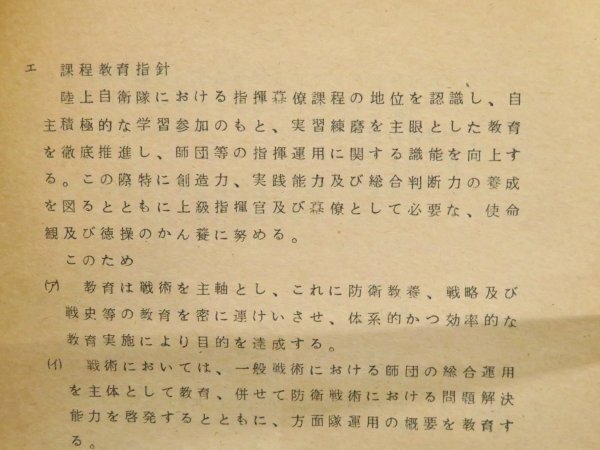 エ　課程教育指針
陸上自衛隊における指揮幕僚課程の地位を認識し、自
主積極的な学習参加のもと、実習練磨を主眼とした教育
を徹底推進し、師団等の指揮運用に関する識能を向上す
る。この際特に創造力、実践能力及び総合判断力の養成
を図るとともに上級指揮官及び幕僚として必要な、使命
観及び徳操のかん養に努める。
このため
㋐　教育は戦術を主軸とし、これに防衛教養、戦略及び
戦史等の教育を密に連けいさせ、体系的かつ効率的な
教育実施により目的を達成する。
㋑　戦術においては、一般戦術における師団の総合運用
を主体として教育、併せて防衛戦術における問題解決
能力を啓発するとともに、方面隊運用の概要を教育す
る。